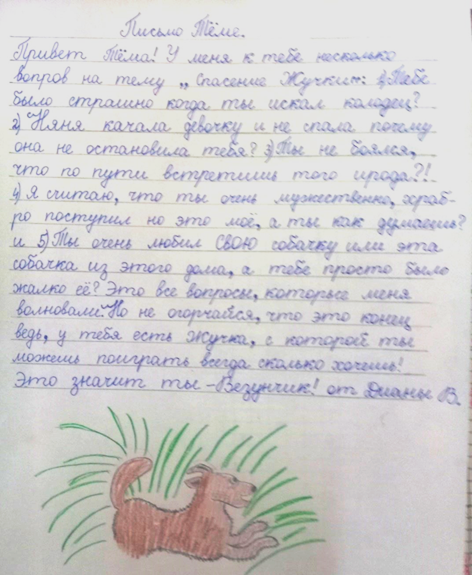 Письмо Тёме.
Привет Тёма! У меня к тебе несколько
вопров на тему „Спасение Жучки": 1) Тебе
было страшно когда ты искал колодец?
2) Няня качала девочку и не спала почему
она не остановила тебя? 3) Ты не боялся,
что по пути встретишь того ирода?!.
4) Я считаю, что ты очень мужественно, храб-
ро поступил но это моё, а ты как думаешь?
и 5) Ты очень любил СВОЮ собачку или эта
собачка из этого дома, а тебе просто было
жалко её? Это все вопросы, которые меня
волновали. Но не огорчайся, что это конец
ведь, у тебя есть Жучка, с которой ты
можешь поиграть всегда сколько хочешь!
Это значит ты - Везунчик! от Дианы В.